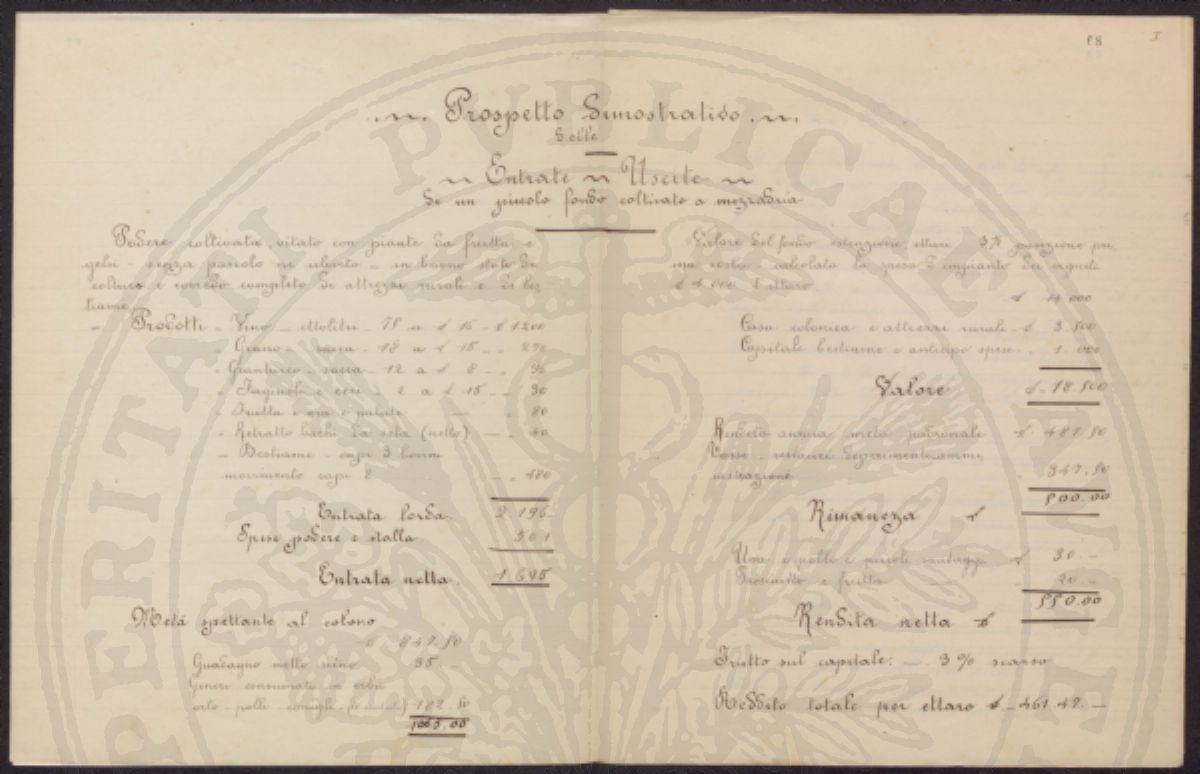 89 I
Prospetto Dimostrativo
delle
Entrate Uscite
di un piccolo fondo coltivato a mezzadria
Podere coltivato vitato con piante da frutta e
gelsi - senza pascolo ne uliveto - in buono stato di
coltura e corredo completo di attrezzi rurali e di bes
tiame
" Prodotti - Vino - ettolitri - 75 a £ 16 - £ 1200
" Grano - sacca - 18 a £ 15 - " 270
" Granturco - sacca - 12 a £ 8 - " 96
" Faginoli e ceci - 2 a £ 15 - " 30
" Frutta e uve e patate — " 80
" Retratto bachi da seta (netto) — " 40
" Bestiame - capi 3 bovini
movimento capi 2 - " 480
Entrata lorda. 2.196-
Spese podere e stalla 501
Entrata netta. 1.695
Metà spettante al colono
£ 847.50
Guadagno nello vino 35.-
Generi consumati in erbe
orto - polli - conigli - 182.50
1065.00
Valore del fondo estenzione ettari pri
ma costa - calcolata la spesa d'impianto dei vigneti
£ 4.000 l'ettaro
£ 14.000
Casa colonica e attrezzi rurali - £ 3.500
Capitale bestiame e anticipo spese . " 1.000
Valore £ 18.500
Rendita annua metà padronale £. 847.50
Tasse - restauri deperimento ammi
nistrazione 347.50
500.00
Rimaneza £
Uova e polli e piccoli vantaggi £ 30.-
e frutta " 20.-
550.00
Rendita netta £
Frutto sul capitale: — 3 % scarso
Reddito totale per ettaro £ - 461.42. —
PERITATI PVBLICAE